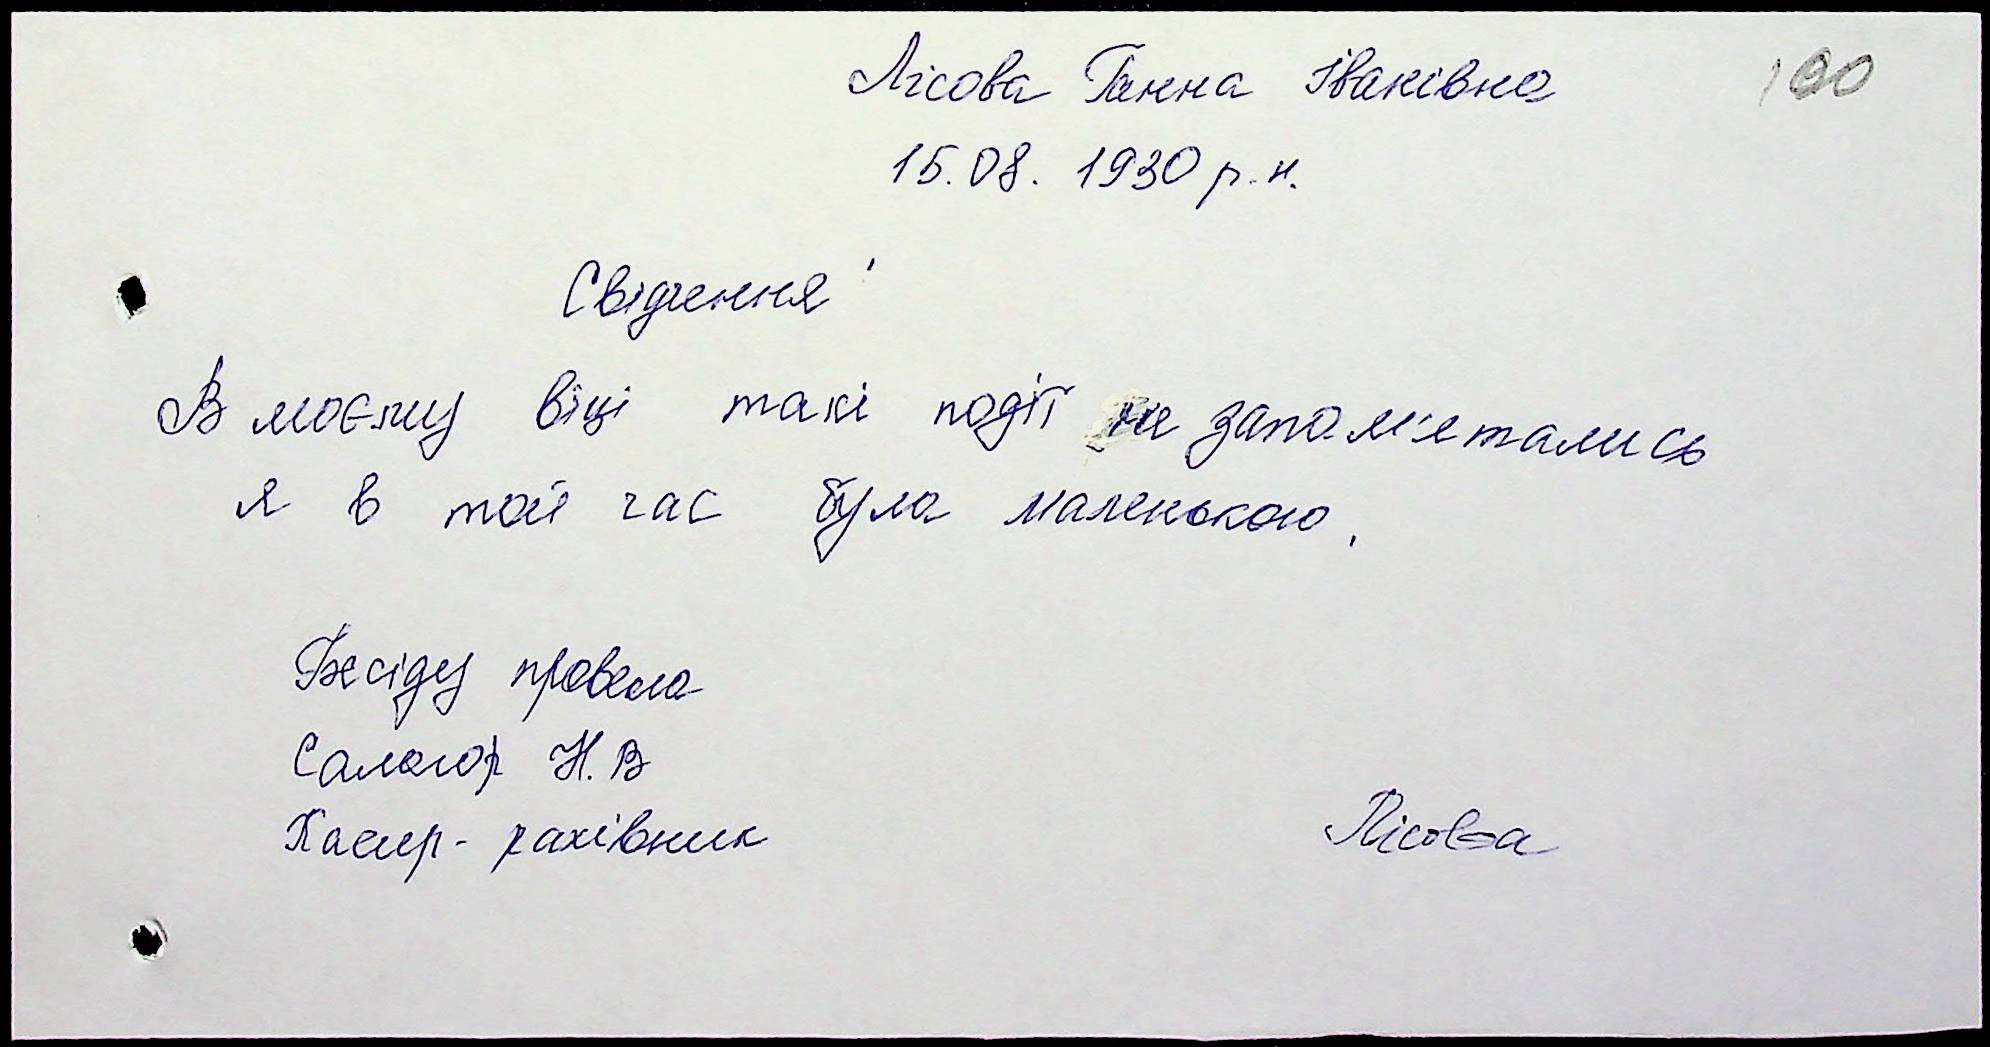 Лісова Ганна Іванівна 100
15.08. 1930 р.н.
Свідчення
В моєму віці такі події не запом'ятались
я в той час була маленькою.
Бесіду провела
Салогор Н.В
Касир- рахівник
Лісова